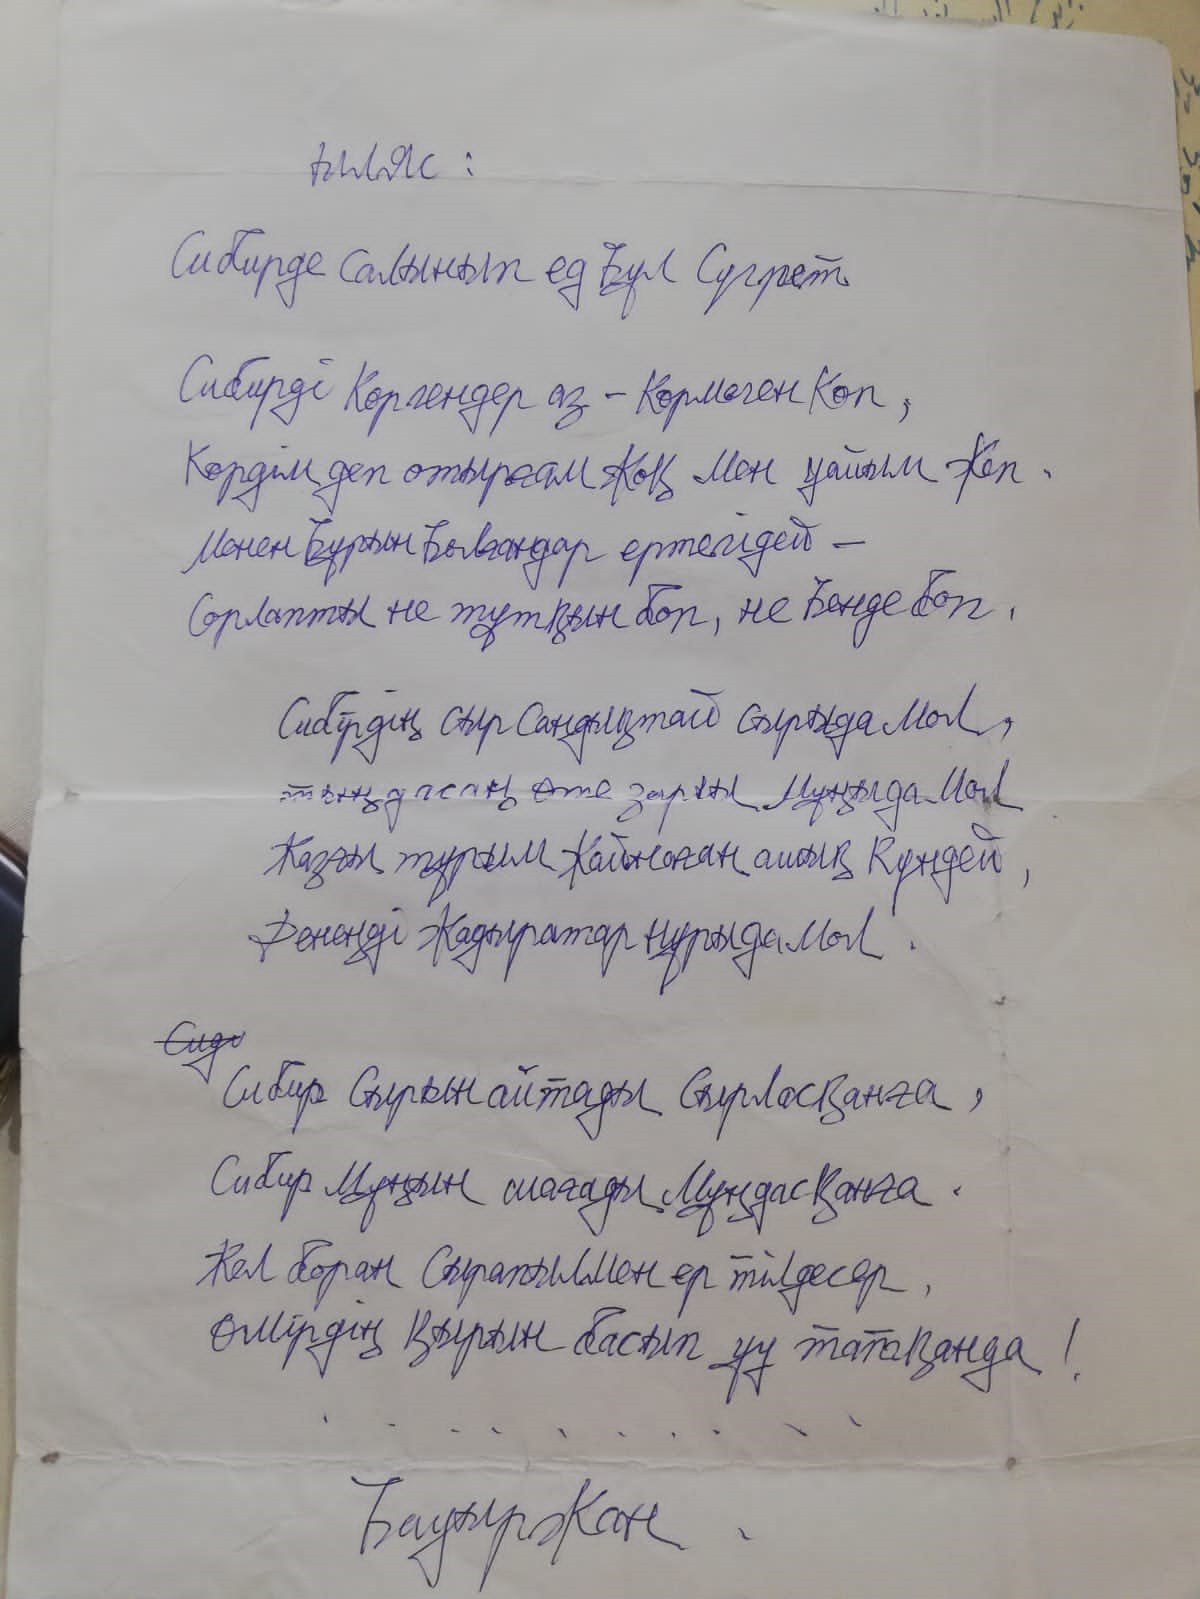 Сибирде салынып ед бұл сугрет
Сибирді көргендер аз – көрмеген көп,
Көрдім деп отырғам жоқ мен уайым жеп.
Менен бұрын болғандар ертегідей –
Сорлапты не тұтқын боп, не бенде боп.
Сибірдің сыр сандықтай сырыда мол,
тыңдасаң өте зарлы мұңыда мол
Жазғы тұрым жайнаған ашық күндей,
Денеңді жадыратар нұрыда мол.
Сибир сырын айтады сырласқанға,
Сибир мұңын шағады мұңдасқанға.
Жел боран сырапылмен ер тілдесер,
Өмірдің қырын басып уу татқанда!
. . . . . . . . . .
Бауыржан.